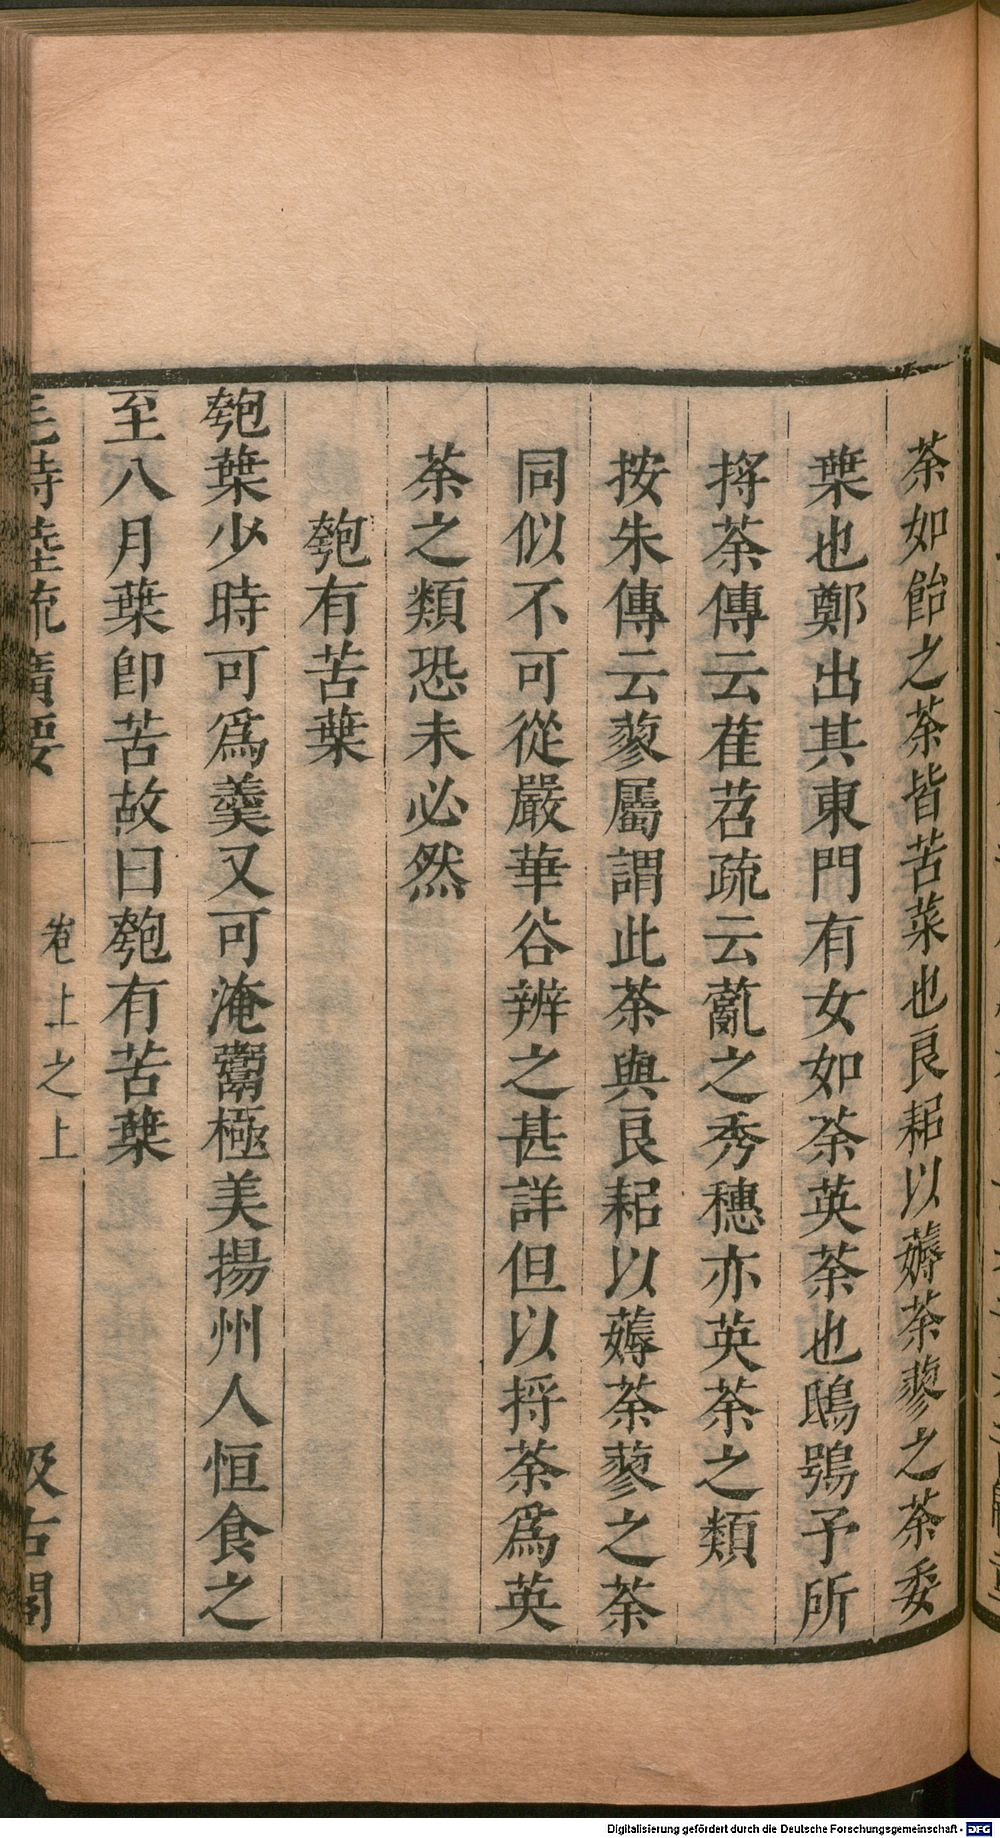 荼如飴之荼皆苦菜也良耜以薅荼蓼之荼委
葉也鄭出其東門有女如荼英荼也鴟鴞予所
捋荼傳云萑苕疏云薍之秀穗亦英荼之類
按朱傳云蓼屬謂此荼與良耜以薅荼蓼之荼
同似不可從嚴華谷辨之甚詳但以捋荼爲英
荼之類恐未必然
匏有苦葉
匏葉少時可爲羹又可淹鬻極美揚州人恒食之
至八月葉卽苦故曰匏有苦葉
毛詩陸疏廣要 卷上之上 汲古閣
Digitalisierung gefördert durch die Deutsche Forschungsgemeinschaft - DFG